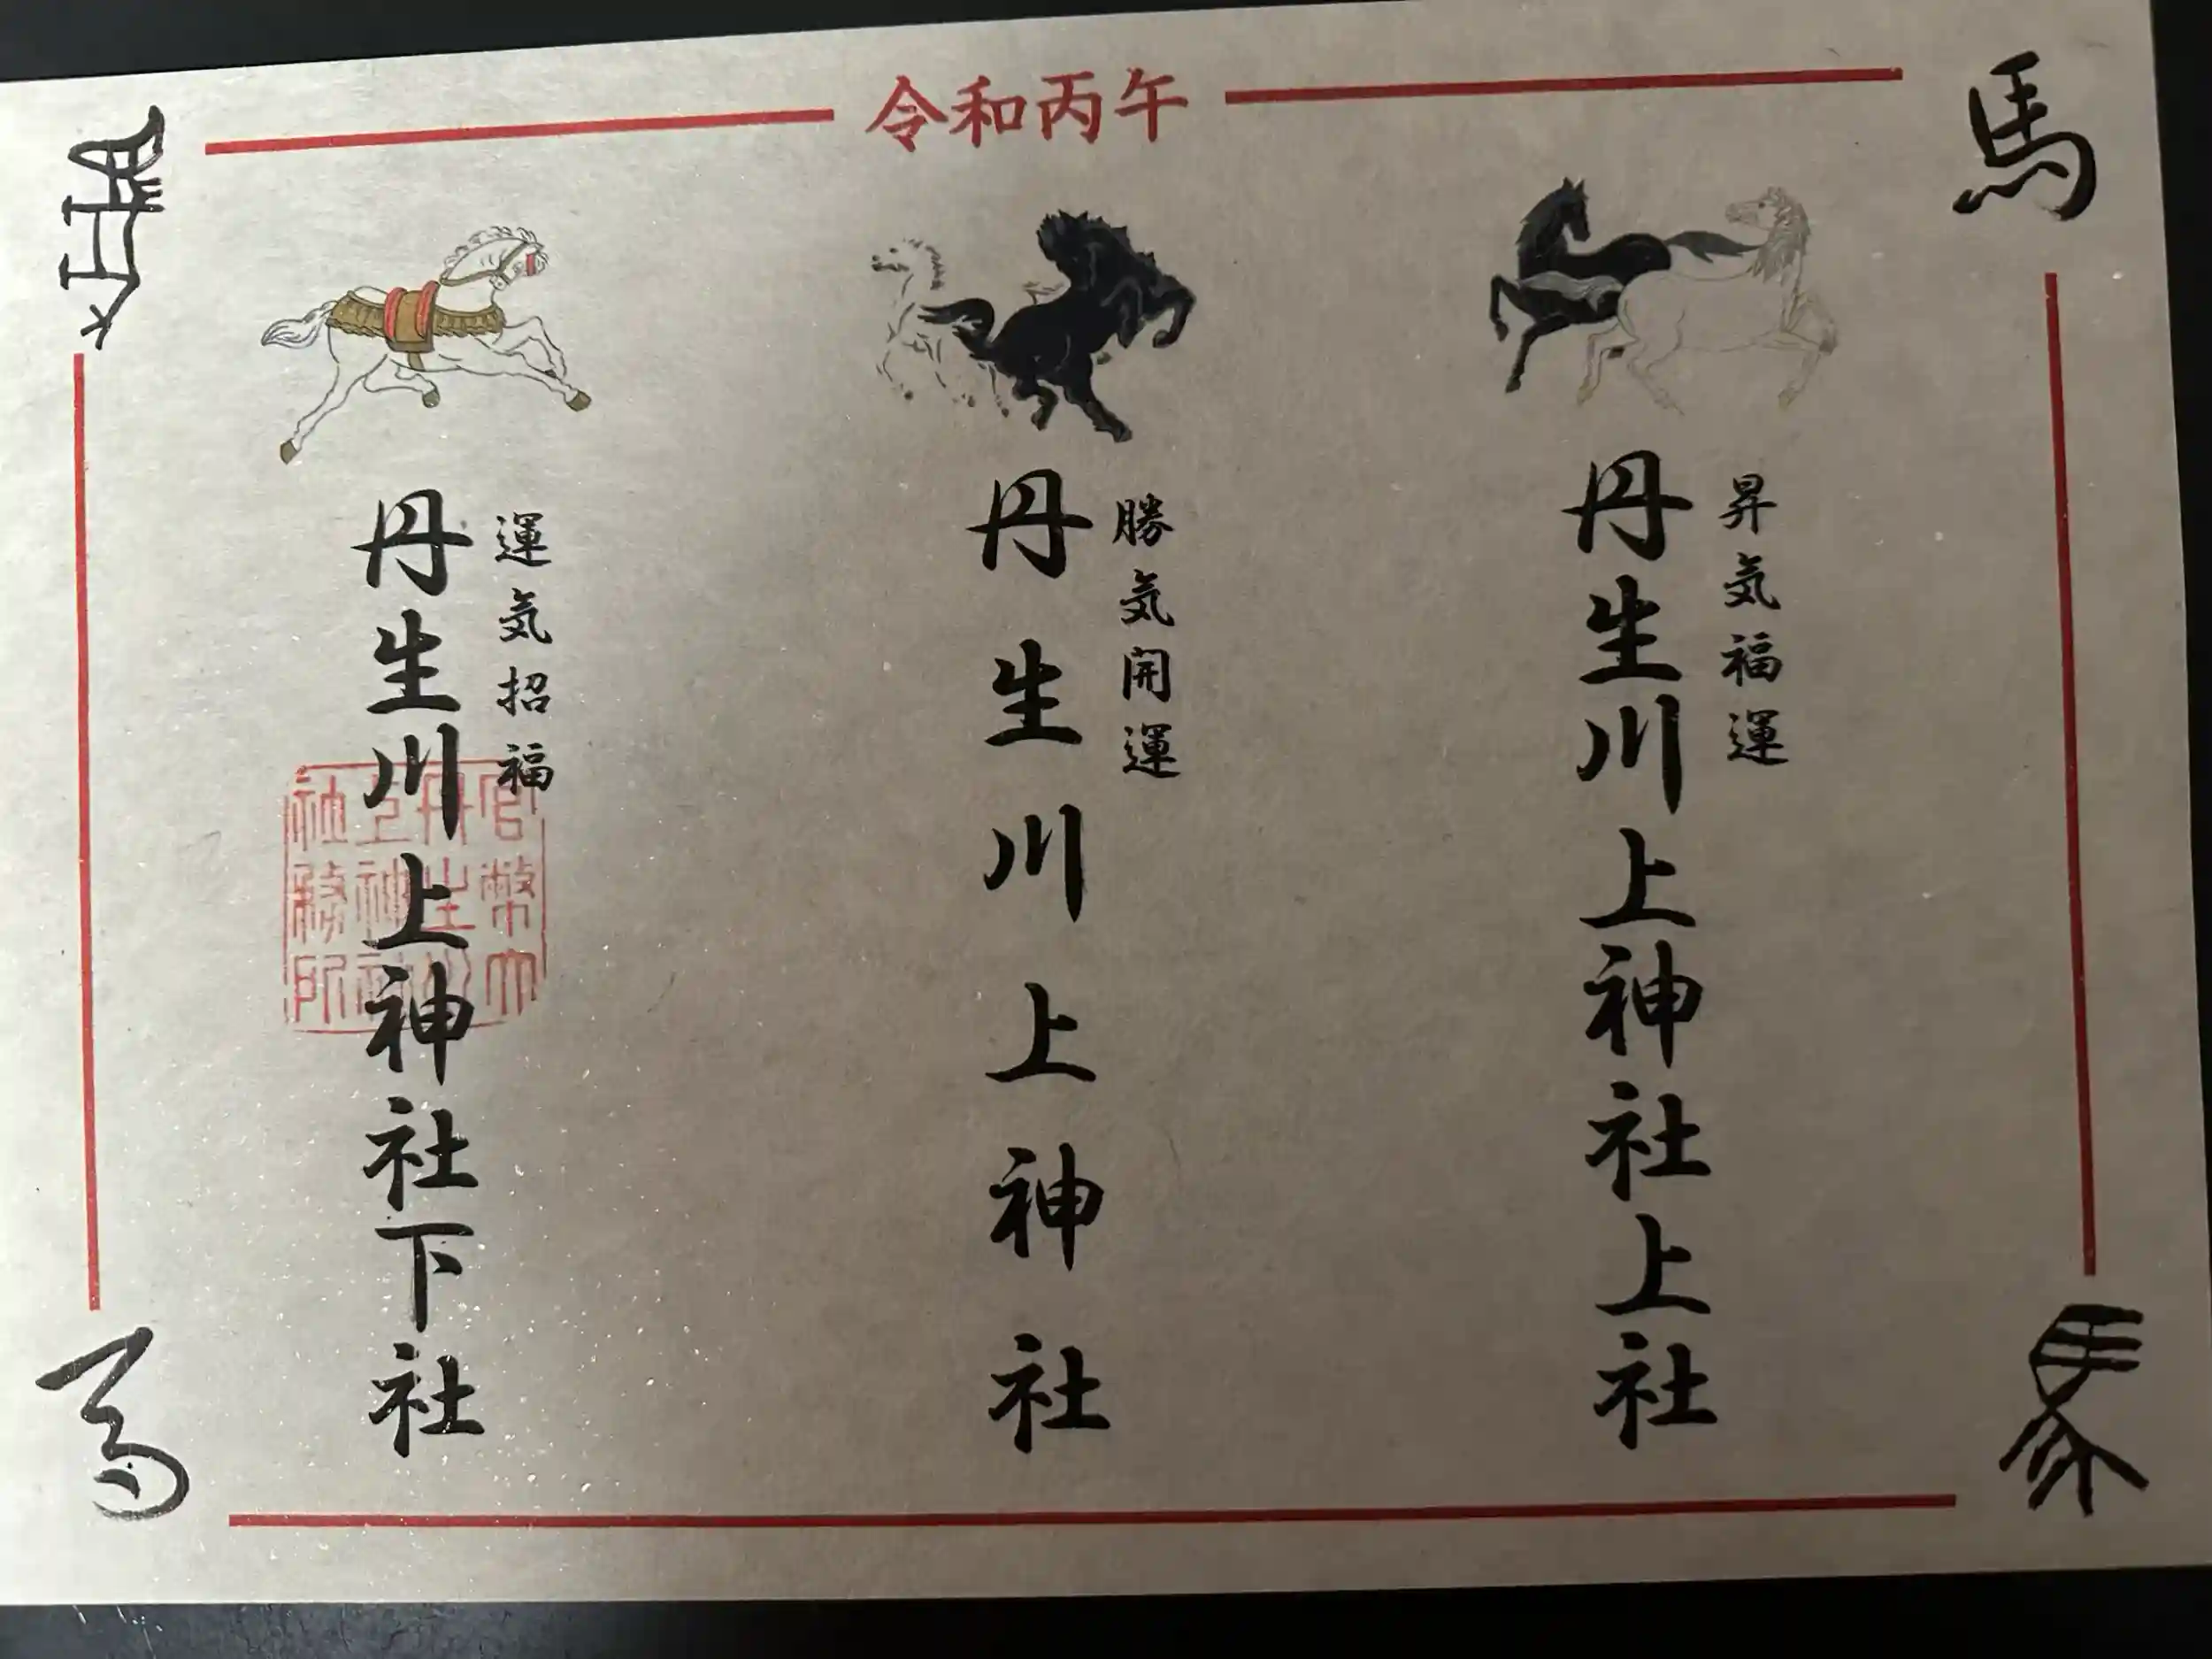 令和丙午
馬
昇気福運
丹生川上神社上社
勝気開運
丹生川上神社
運気招福
丹生川上神社下社
官幣大
丹生川
上神社
社務所
馬
馬
馬